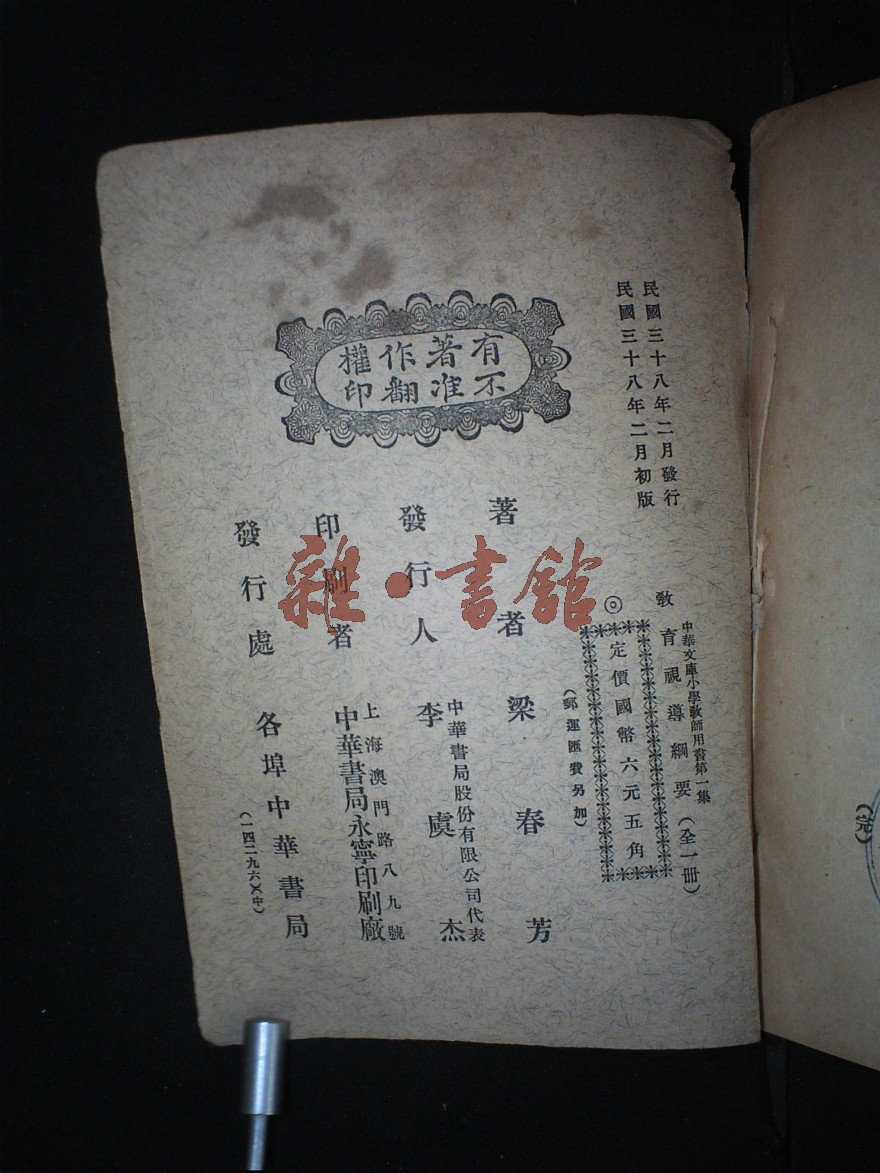 民國三十八年二月發行
民國三十八年二月初版
中華文庫小學教師用書第一集
教育視導綱要（全一冊）
◎定價國幣六元五角
（郵運匯費另加）
有著作權
不准翻印
著者 梁春芳
發行人 中華書局股份有限公司代表
李虞杰
印刷者 上海澳門路八九號
中華書局永寧印刷廠
發行處 各埠中華書局
（一四二九六）（中）
雜·書館
（完）